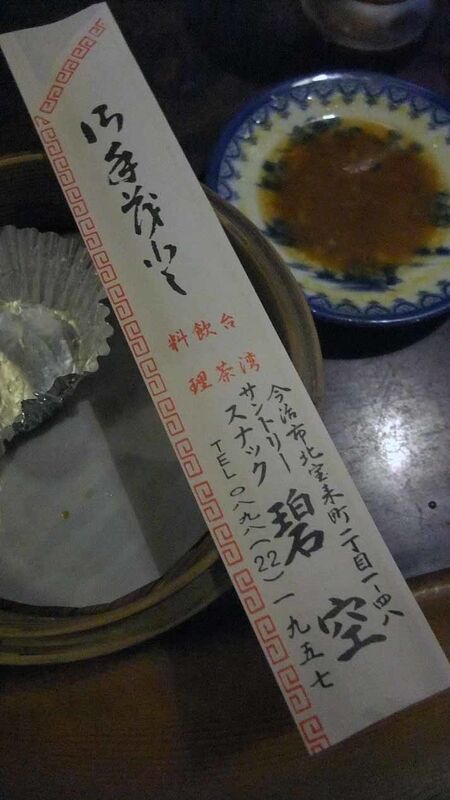 御手茂登
台湾
飲茶
料理
今治市北宝来町一丁目一-四八
サントリー
スナック
碧空
TEL〇八九八(22)一九五七